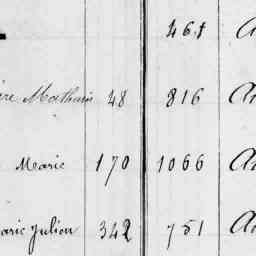 461 A
Mathurin 48 816 A
Marie 170 1066 A
Marie Julien 342 751 A